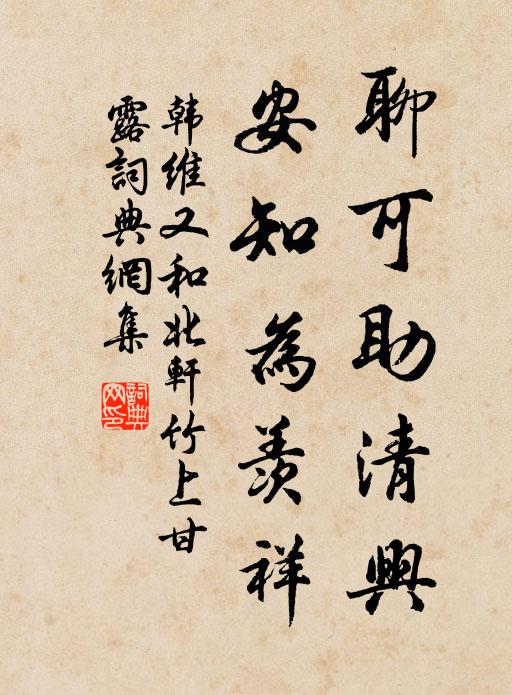 聊可助清興
安知為羨祥
韩维又和北軒竹上甘
露詞典網集
詞典
网印